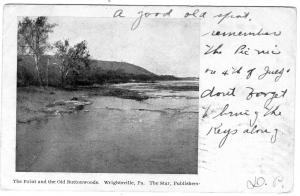 A good old spot.
remember
the Picnic
on 4th of July.
dont forget
to bring the
Keys along
The Point and the Old Buttonwoods. Wrightsville, Pa. The Star, Publishers